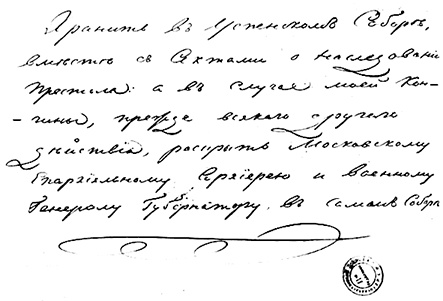 Хранить въ Успенскомъ Соборѣ,
вмѣстѣ съ Актами о наслѣдованіи
Престола: а въ случаѣ моей Кон-
-чины, прежде всякаго другаго
дѣйствія, раскрыть Московскому
Епархіяльному Архіерею и Военному
Генералу Губернатору, въ самомъ Соборѣ